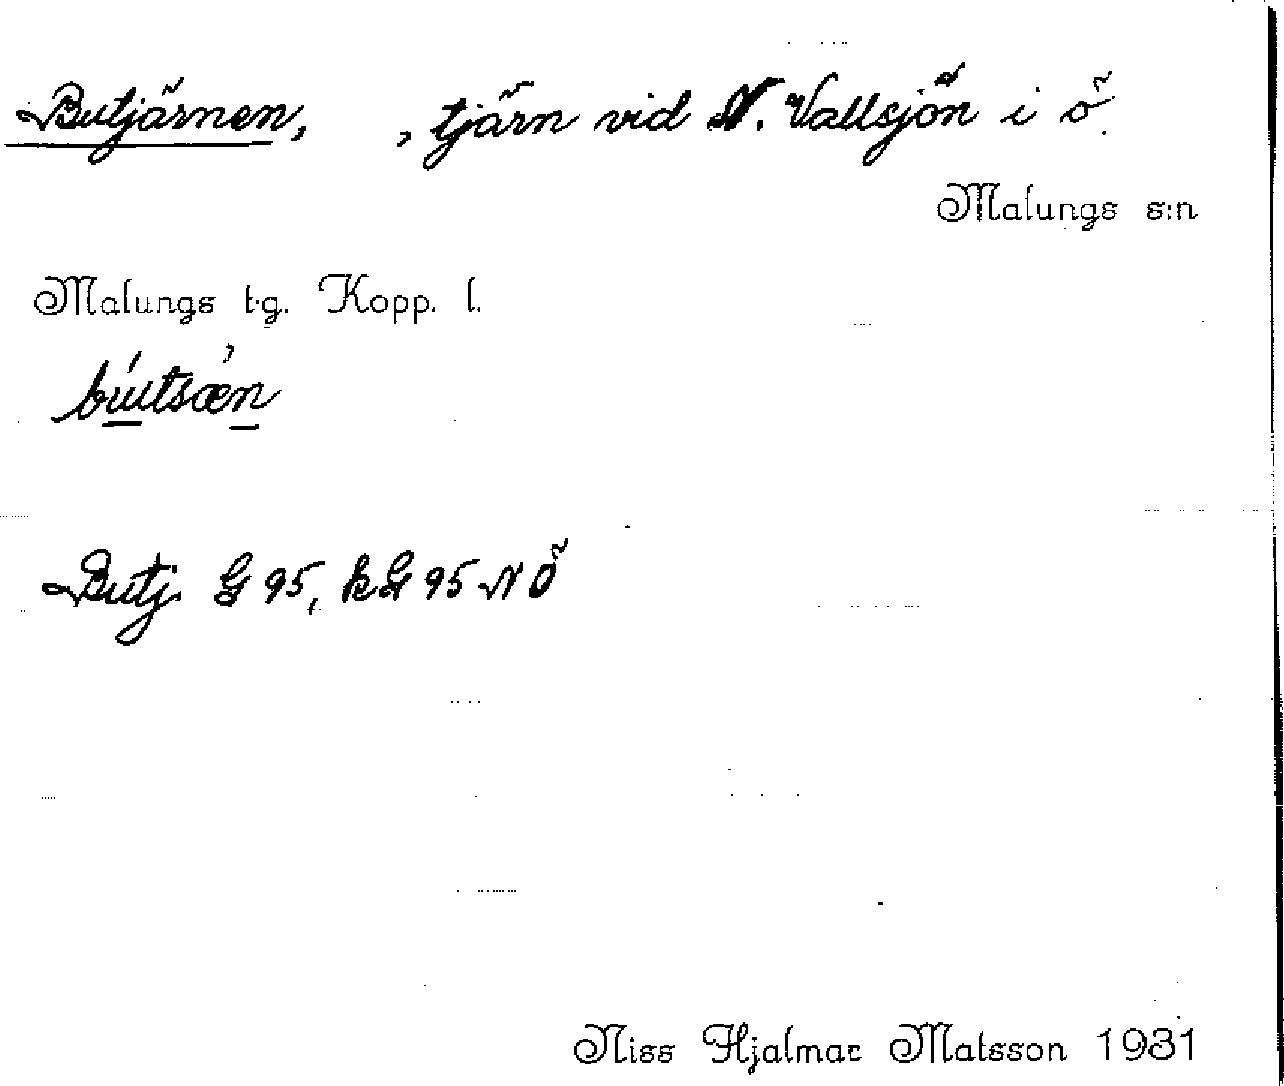 Butjärnen, , tjärn vid N. Vallsjön i ö.
Malungs s:n
Malungs tg. Kopp. l.
búutsæ̀n
Butj. G 95, kG 95 N Ö
Niss Hjalmar Matsson 1931